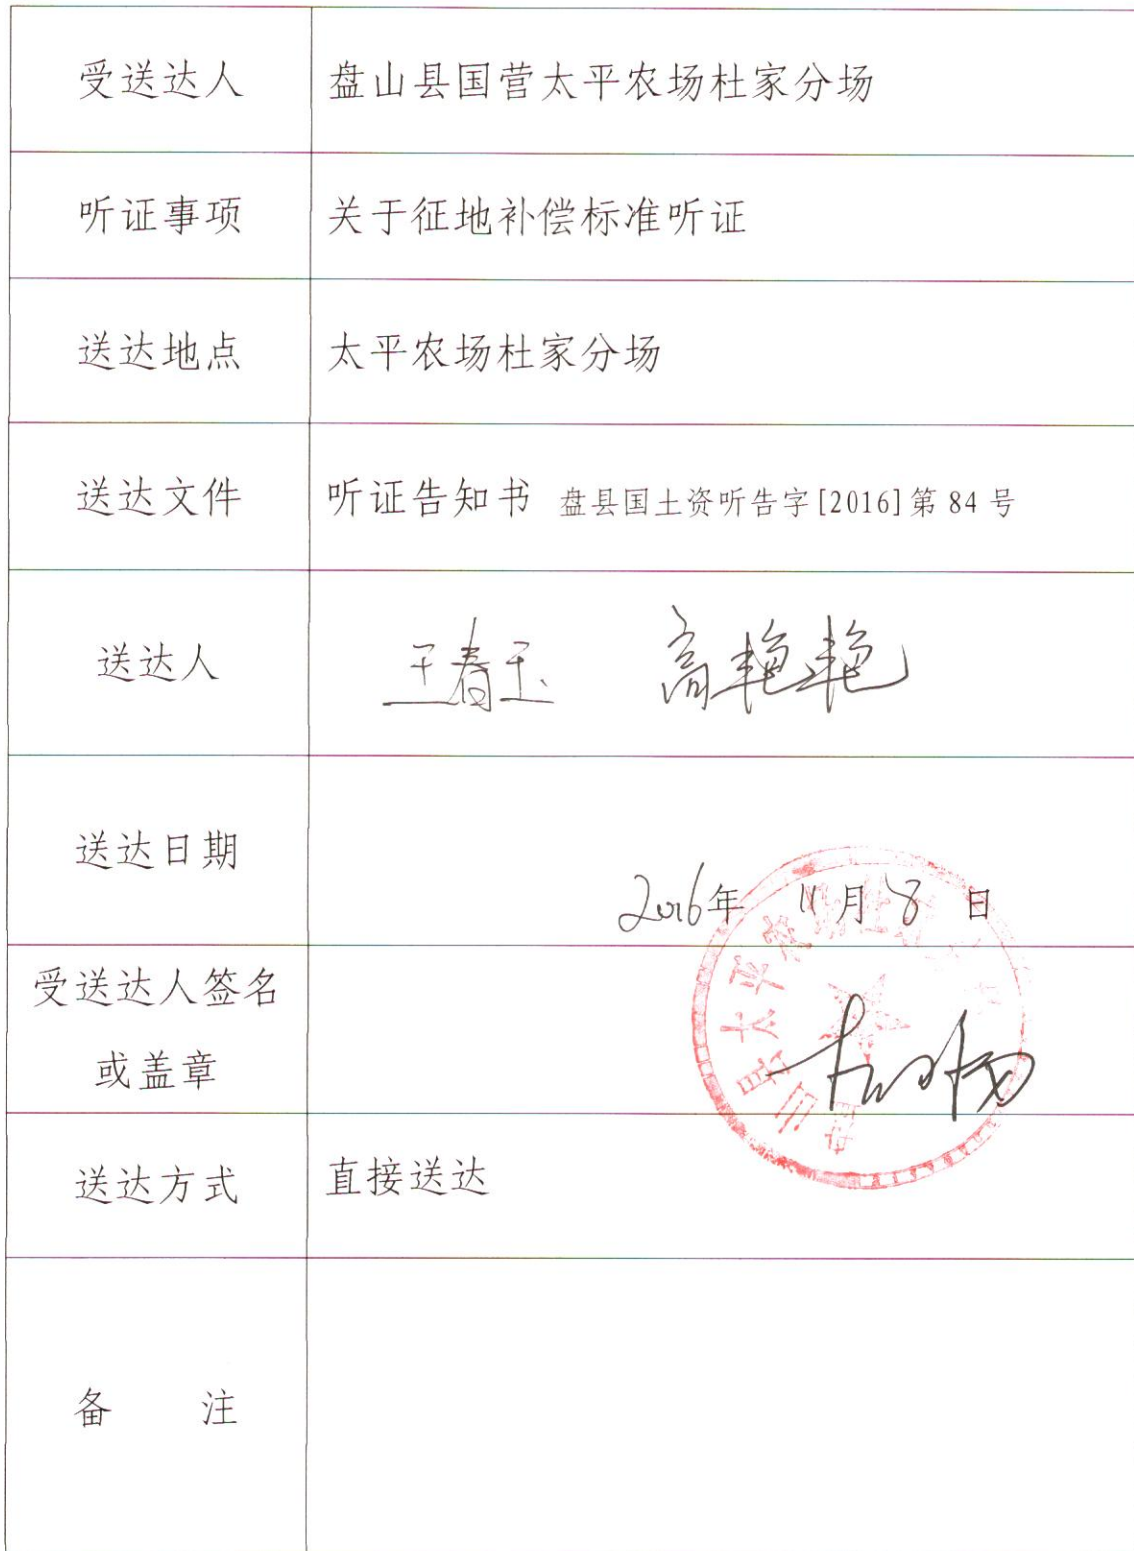 受送达人 盘山县国营太平农场杜家分场
听证事项 关于征地补偿标准听证
送达地点 太平农场杜家分场
送达文件 听证告知书 盘县国土资听告字[2016]第 84 号
送达人 王春玉 高艳艳
送达日期 2016年 11月 8 日
受送达人签名
或盖章
送达方式 直接送达
备 注